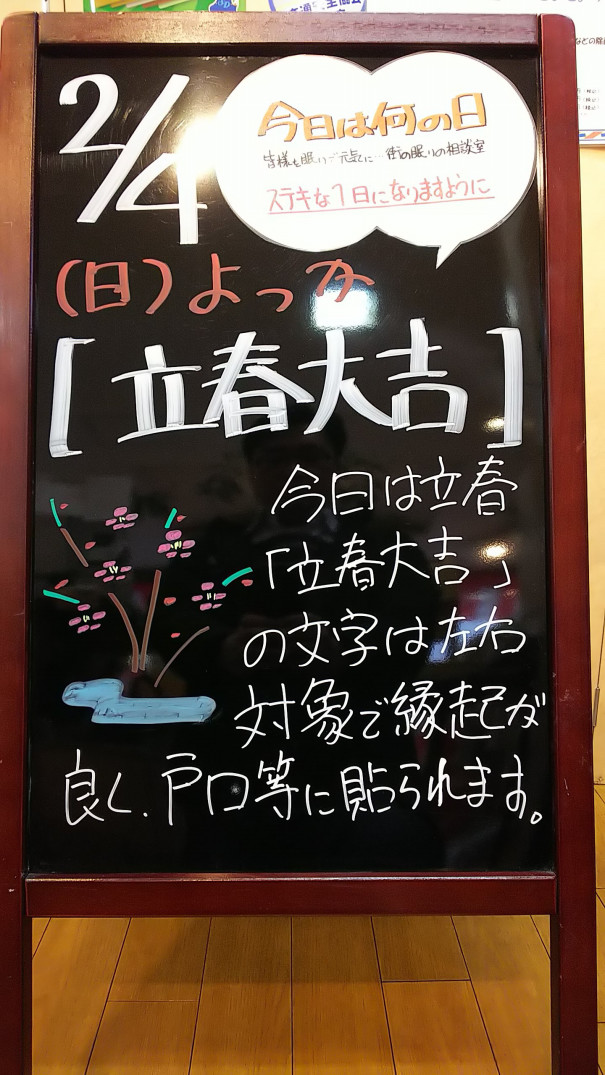 2/4
今日は何の日
皆様を眠りで元気に…街の眠りの相談室
ステキな1日になりますように
(日)よっか
[立春大吉]
今日は立春
「立春大吉」
の文字は左右
対象で縁起が
良く、戸口等に貼られます。